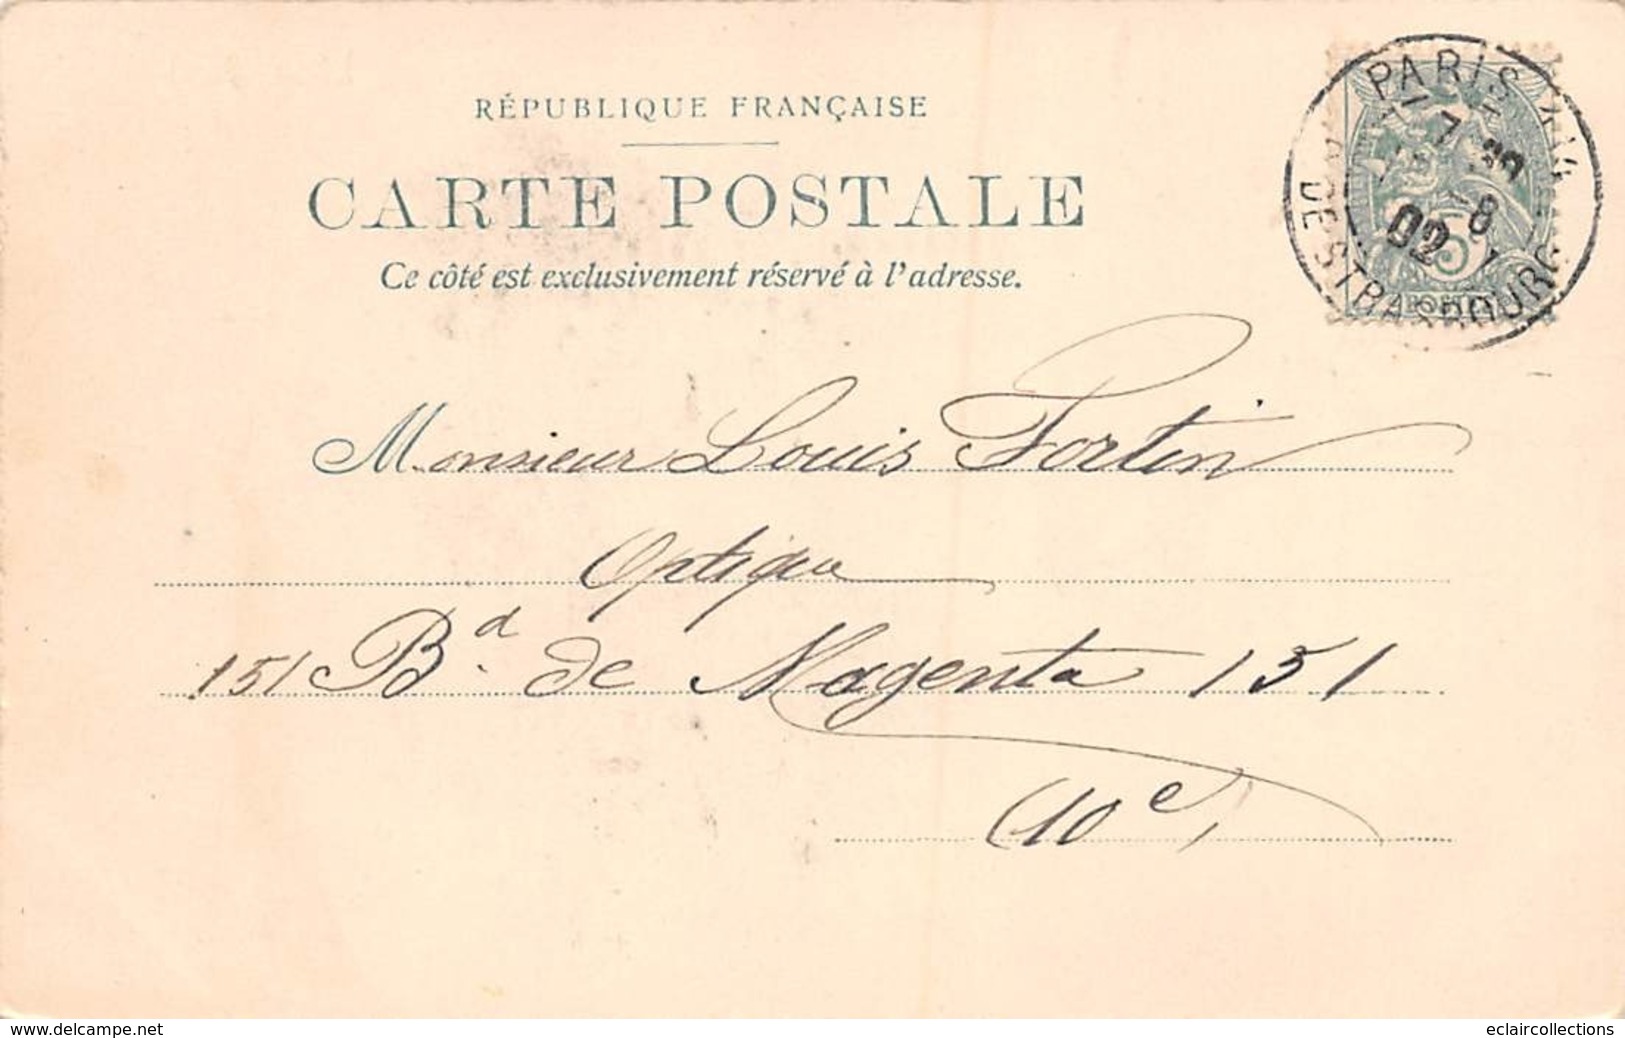 RÉPUBLIQUE FRANÇAISE
CARTE POSTALE
Ce côté est exclusivement réservé à l'adresse.
PARIS
7
8
02
5
DE STRASBOURG
Monsieur Louis Fortin
Optique
151 Bd. de Magenta 151
(10e)
www.delcampe.net
eclaircollections